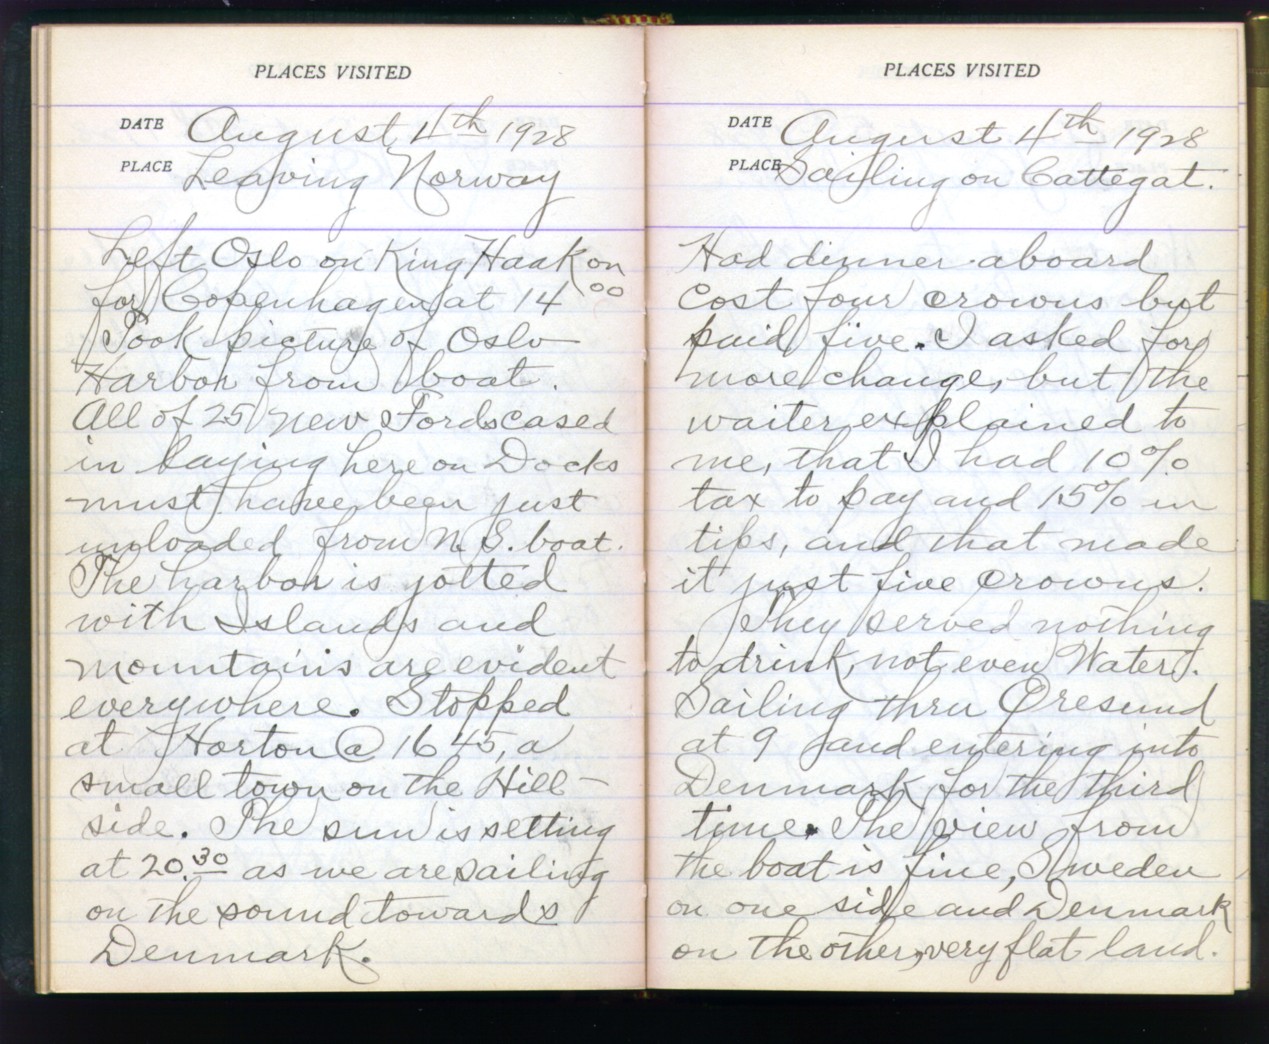 PLACES VISITED
DATE August 4th 1928
PLACE Leaving Norway
Left Oslo on King Haakon
for Copenhagen at 14 00
Took picture of Oslo
Harbor from boat.
All of 25 new Fords cased
in laying here on Docks
must have been just
unloaded from N.S. boat.
The harbor is jotted
with Islands and
mountains are evident
everywhere. Stopped
at Horton @ 16 45, a
small town on the Hill-
side. The sun is setting
at 20.30 as we are sailing
on the sound towards
Denmark.
PLACES VISITED
DATE August 4th 1928
PLACE Sailing on Cattegat.
Had dinner aboard
cost four crowns but
paid five. I asked for
more change, but the
waiter explained to
me, that I had 10%
tax to pay and 15% in
tips, and that made
it just five crowns.
They served nothing
to drink, not even Water.
Sailing thru Øresund
at 9 and entering into
Denmark for the third
time. The view from
the boat is fine, Sweden
on one side and Denmark
on the other, very flat land.